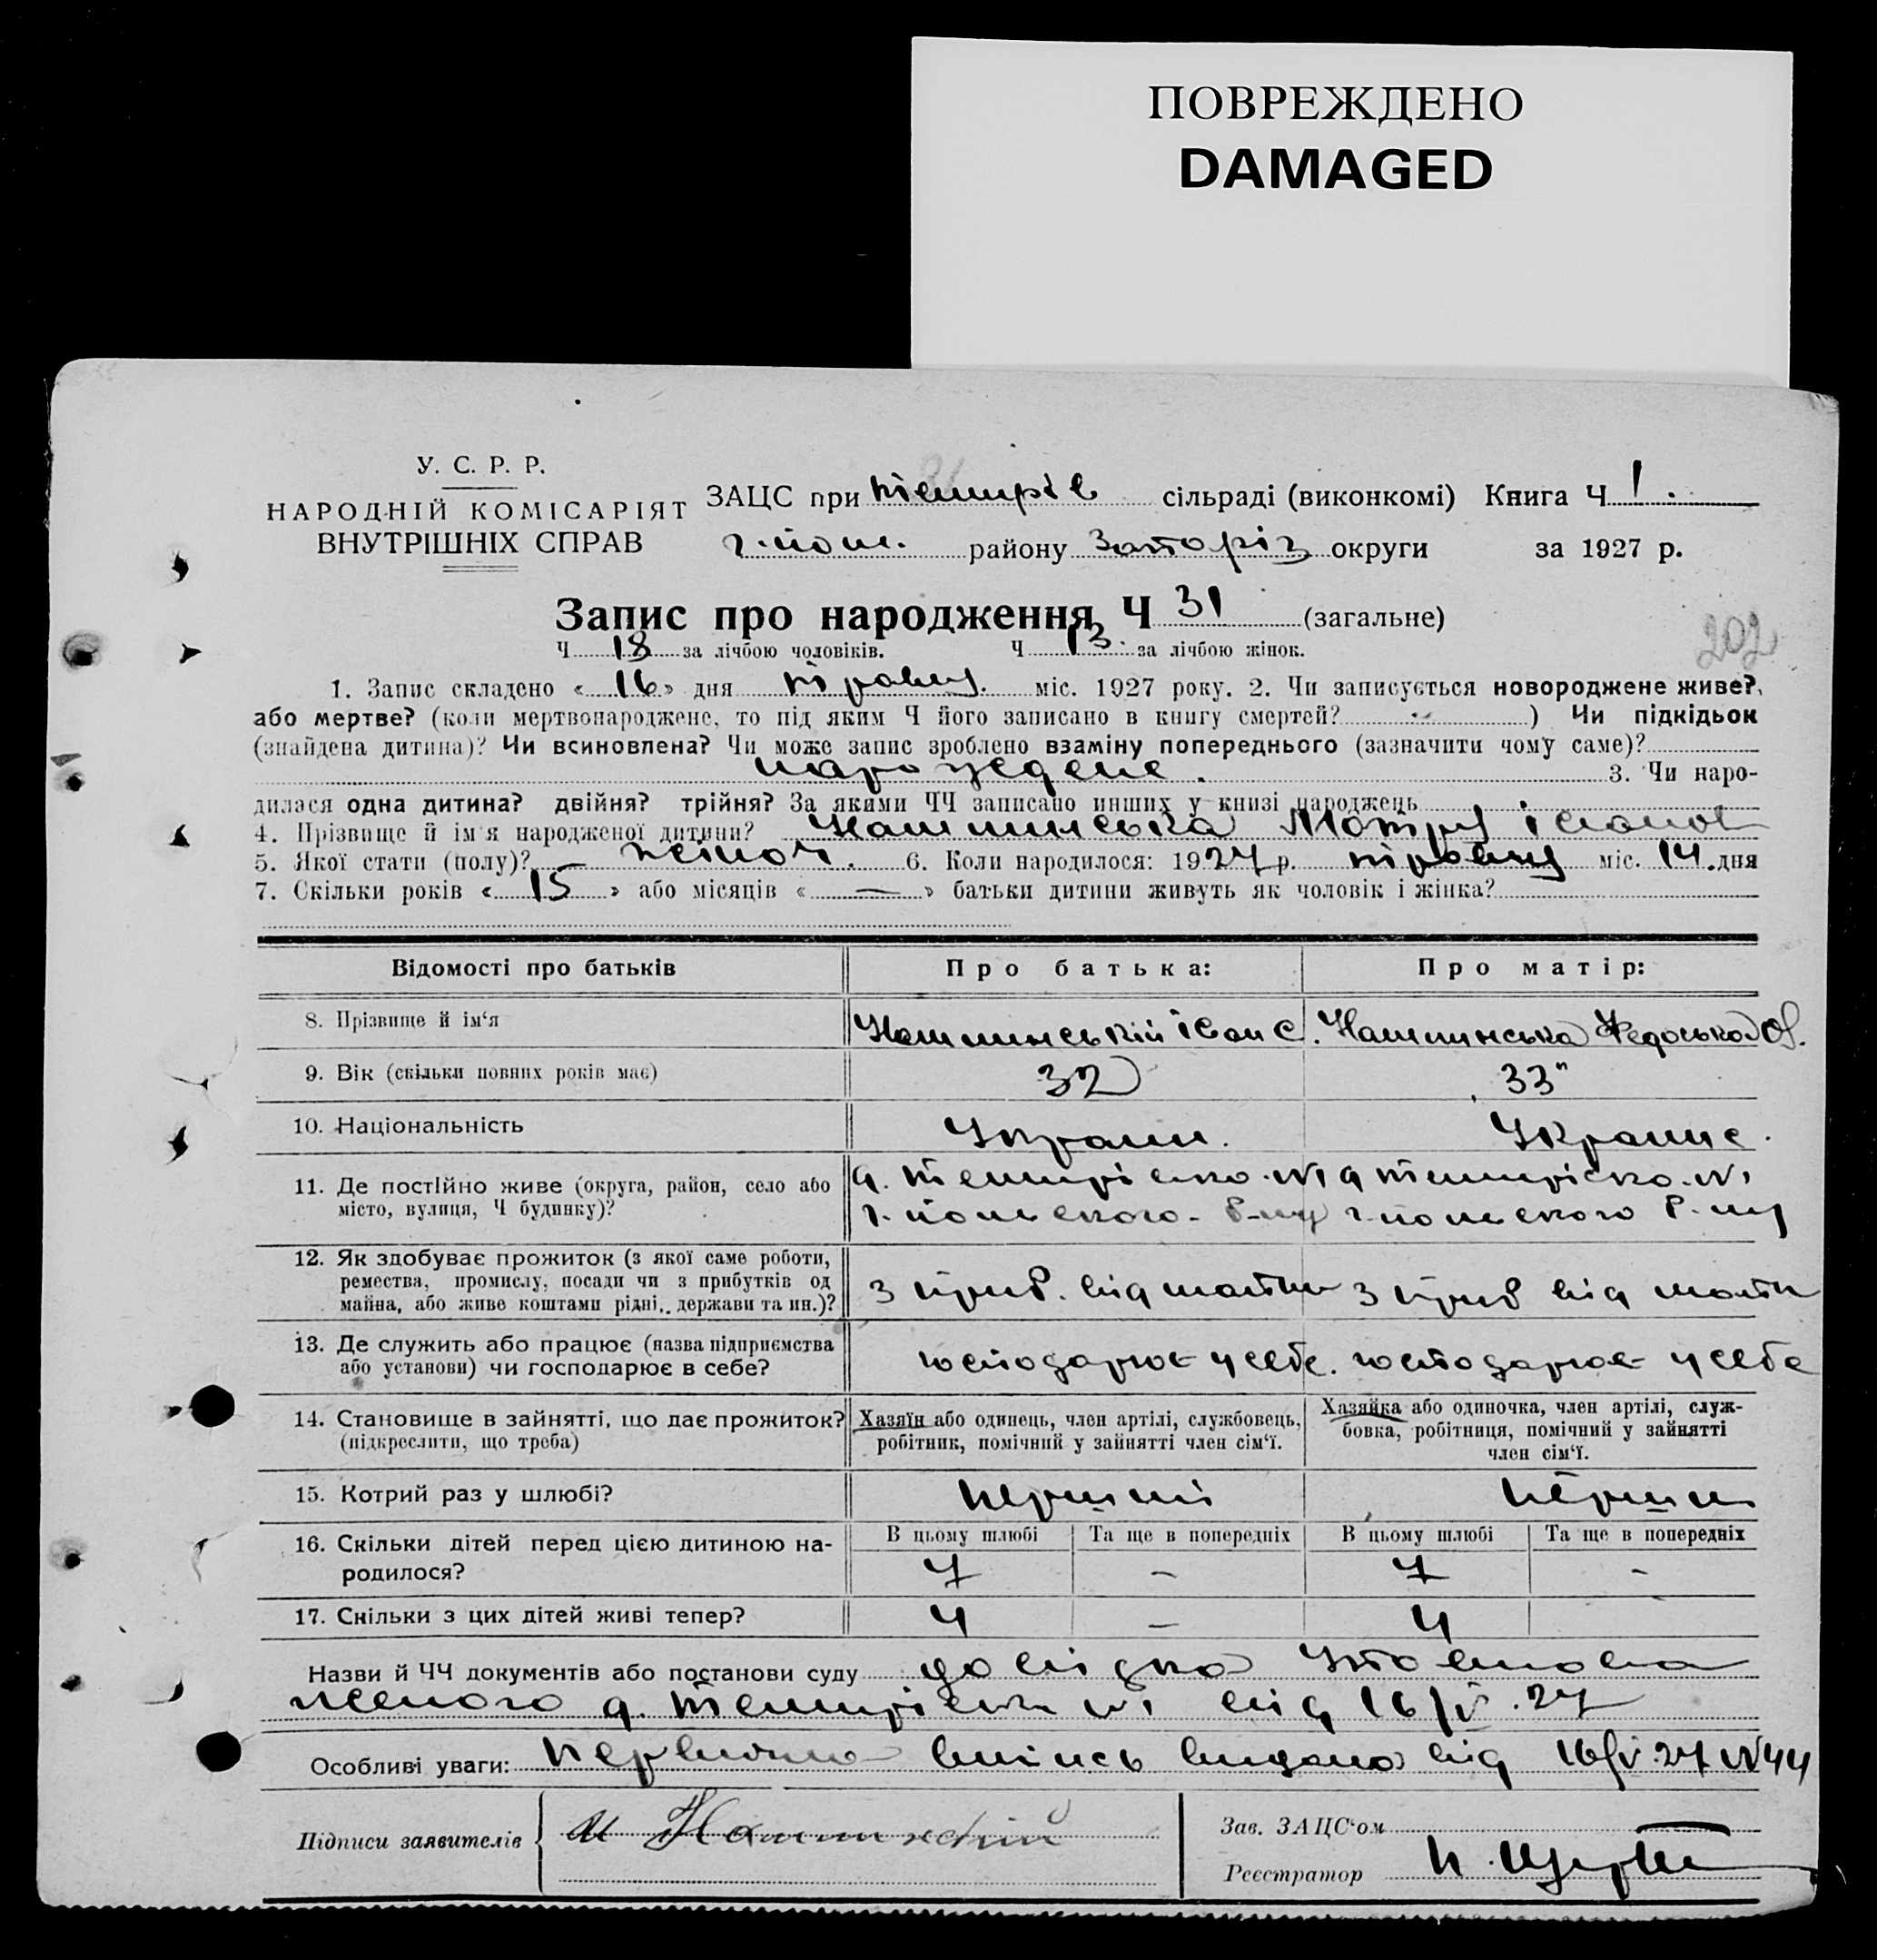 ПОВРЕЖДЕНО
DAMAGED
У. С. Р. Р.
НАРОДНІЙ КОМІСАРІЯТ
ВНУТРІШНІХ СПРАВ
ЗАЦС при Темирів сільраді (виконкомі) Книга Ч 1.
г-пол. району Запоріз округи за 1927 р.
Запис про народження Ч 31 (загальне)
Ч 18 за лічбою чоловіків. Ч 13 за лічбою жінок.
202
1. Запис складено « 16 » дня травня міс. 1927 року. 2. Чи записується новороджене живе?,
або мертве? (коли мертвонароджене, то під яким Ч його записано в книгу смертей? ) Чи підкідьок
(знайдена дитина)? Чи всиновлена? Чи може запис зроблено взаміну попереднього (зазначити чому саме)?
народжене. 3. Чи наро-
дилася одна дитина? двійня? трійня? За якими ЧЧ записано инших у книзі народжень
4. Прізвище й ім'я народженої дитини? Нашинська Мотря Іванов
5. Якої стати (полу)? — жіноч. 6. Коли народилося: 1927 р. травня міс. 14. дня
7. Скільки років « 15 » або місяців « — » батьки дитини живуть як чоловік і жінка?
Відомості про батьків Про батька: Про матір:
8. Прізвище й ім'я Нашинський Іван С. Нашинська Федоська
9. Вік (скільки повних років має) 32 33
10. Національність Україн. Украине.
11. Де постійно живе (округа, район, село або
місто, вулиця, Ч будинку)?
с. Темирівка №1 с Темирівка №1
г-польского р-ну г-польского р-ну
12. Як здобуває прожиток (з якої саме роботи,
ремества, промислу, посади чи з прибутків од
майна, або живе коштами рідні, держави та ин.)?
з приб. від майна з приб від майна
13. Де служить або працює (назва підприємства
або установи) чи господарює в себе?
господарює у себе. господарює у себе
14. Становище в зайнятті, що дає прожиток?
(підкреслити, що треба)
Хазяїн або одинець, член артілі, службовець,
робітник, помічний у зайнятті член сім'ї.
Хазяйка або одиночка, член артілі, служ-
бовка, робітниця, помічний у зайнятті
член сім'ї.
15. Котрий раз у шлюбі? перший перший
16. Скільки дітей перед цією дитиною на-
родилося?
В цьому шлюбі Та ще в попередніх В цьому шлюбі Та ще в попередніх
7 – 7 –
17. Скільки з цих дітей живі тепер? 4 — 4
Назви й ЧЧ документів або постанови суду довідка Уповнова
женого с. Темирівки №1 від 16/V.27
Особливі уваги: первична випись видана від 16/V.27 №44
Підписи заявителів И Нашинский
Зав. ЗАЦС'ом
Реєстратор